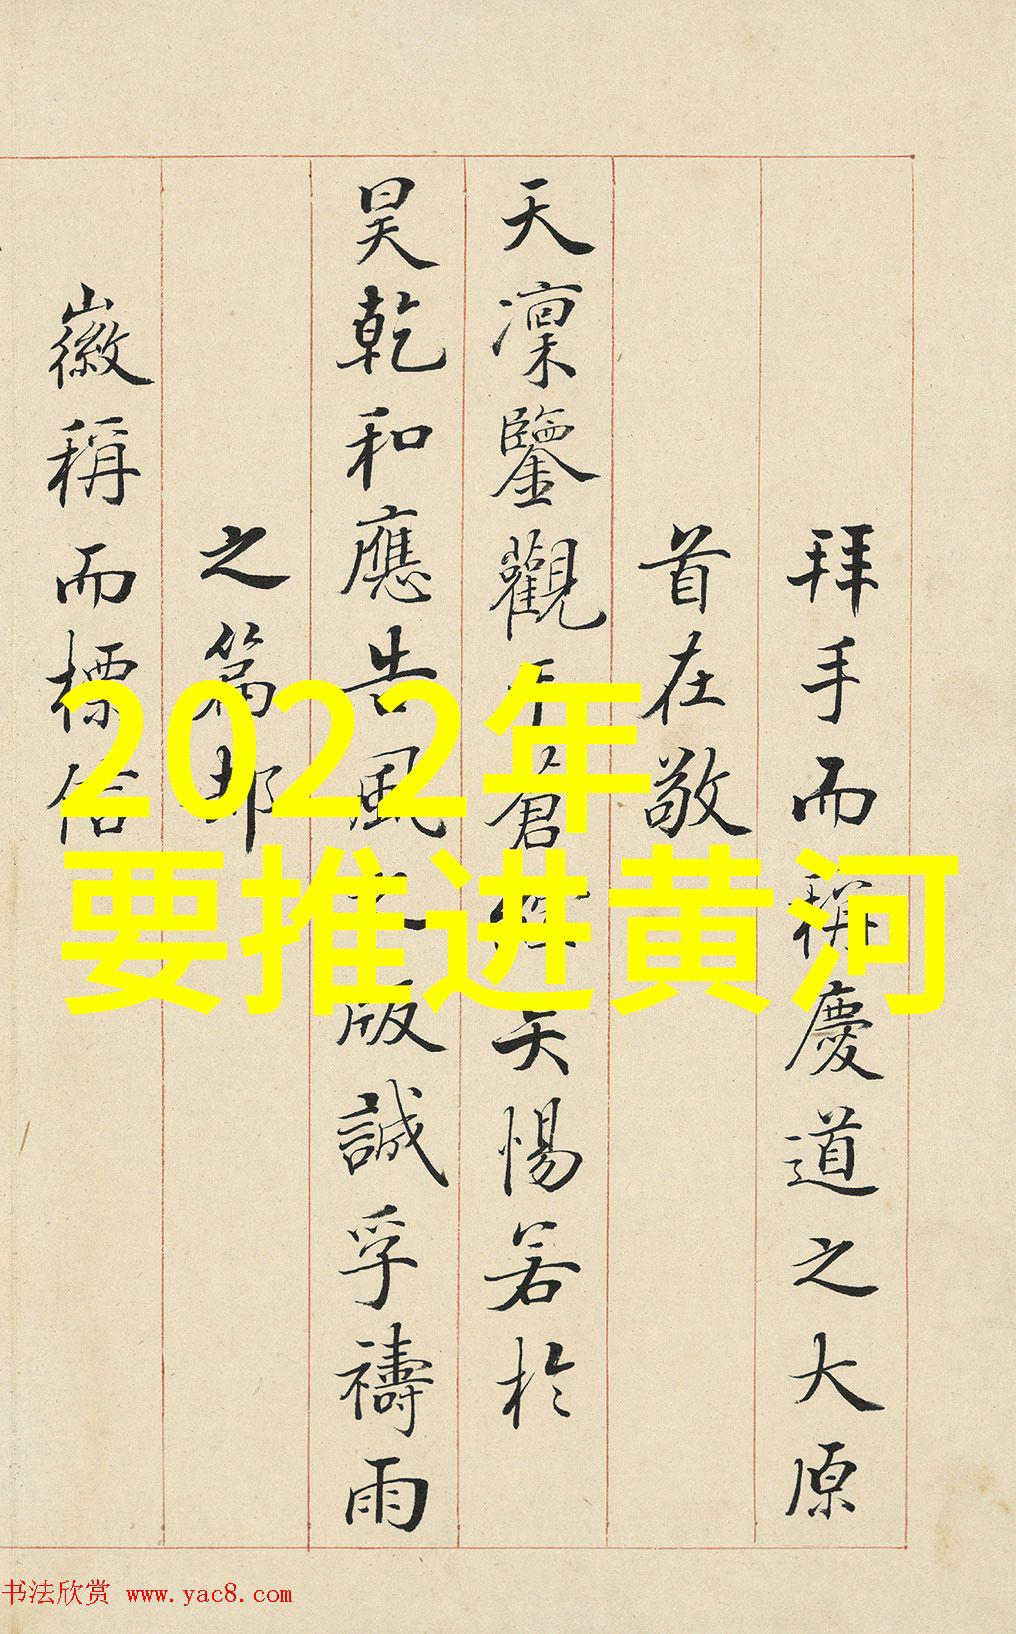 2022年
要推进黄河
拜手而稱慶道之大原
首在敬
天凜鑒觀於蒼 天惕若於
昊乾和應告風 版誠孚禱雨
之篇
徽稱而標
书法欣赏 www.yac8.com